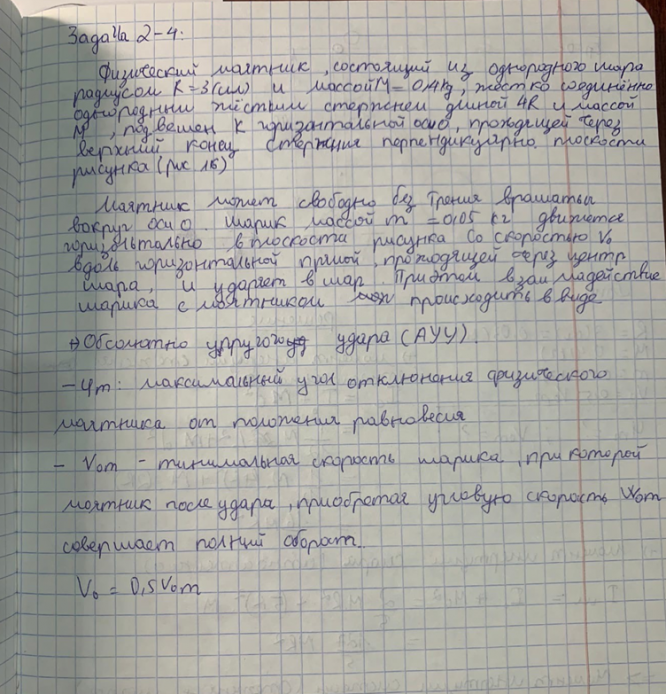 Задача 2-4.
Физический маятник, состоящий из однородного шара
радиусом R=3(см) и массой М=0,4kg, жестко соединённо
однородным жёстким стержнем длиной 4R и массой
М, подвешен к горизонтальной оси О, проходящей через
верхний конец стержня перпендикулярно плоскости
рисунка (рис 15)
Маятник может свободно без трения вращаться
вокруг оси О. Шарик массой m = 0,05 кг движется
горизонтально в плоскости рисунка со скоростью V₀
вдоль горизонтальной прямой, проходящей через центр
шара, и ударяет в шар. При этом взаимодействие
шарика с маятником происходить в виде
Обсолютно упругого удара (АУУ).
- φm: максимальный угол отклонения физического
маятника от положения равновесия
- V₀m - минимальная скорость шарика, при которой
маятник после удара, приобретая угловую скорость W₀m
совершает полный оборот..
V₀ = 0,5V₀m